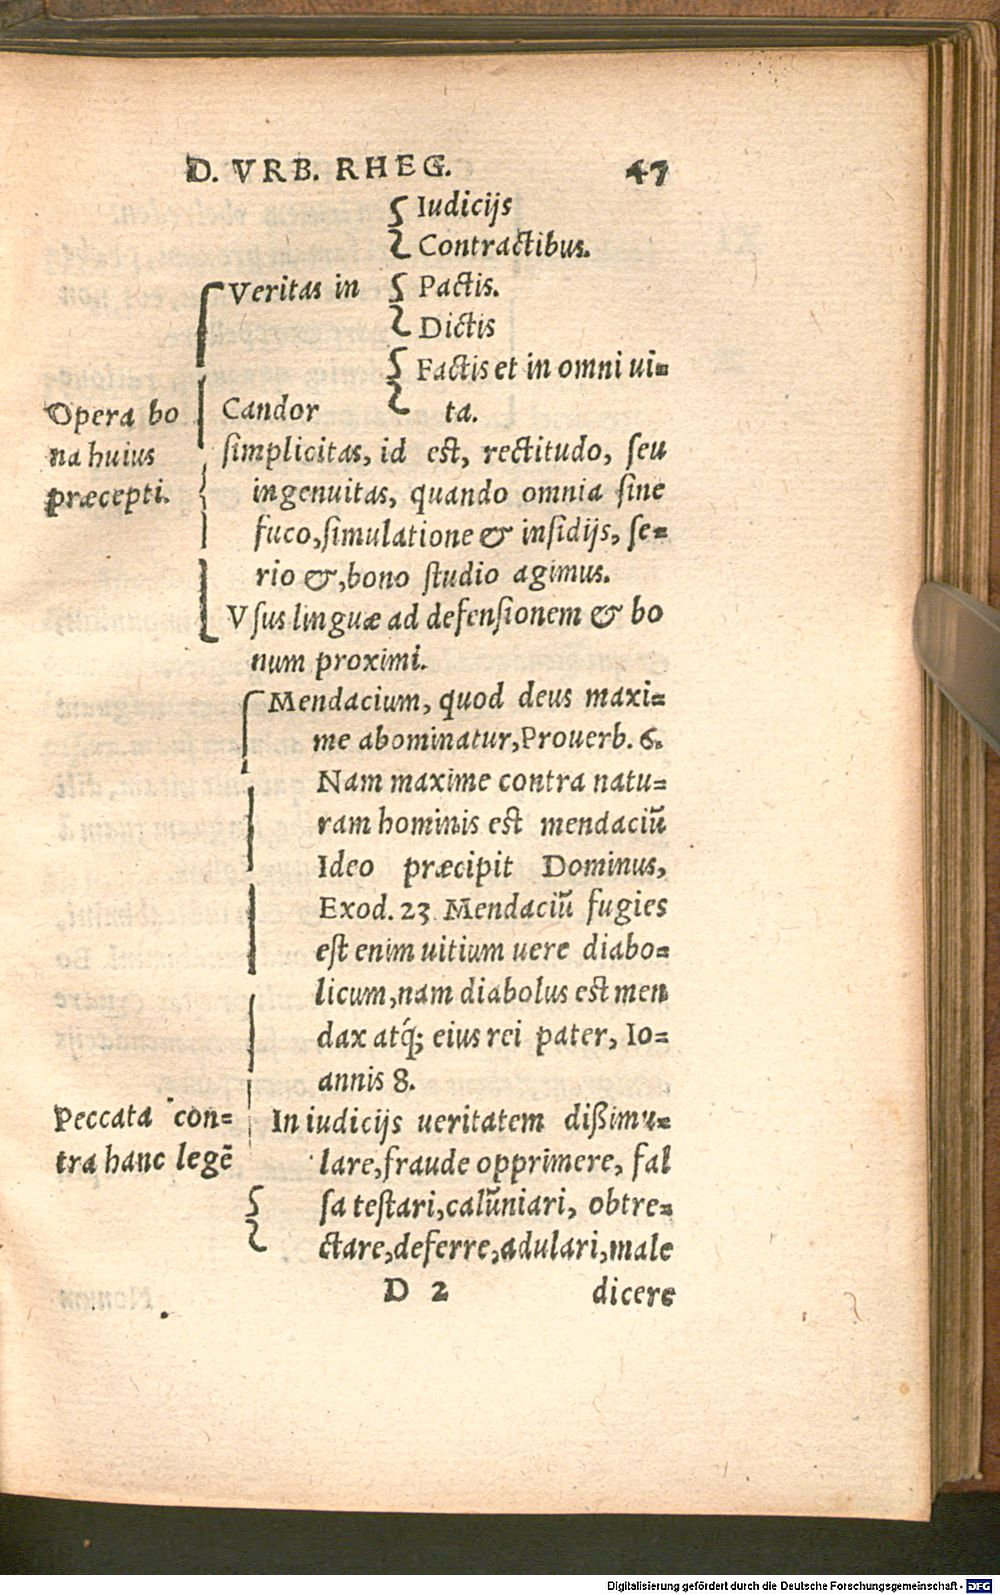 D. VRB. RHEG. 47
Iudicijs
Contractibus.
Veritas in
Pactis.
Dictis
Factis et in omni ui=
ta.
Opera bo
na huius
præcepti.
Candor
simplicitas, id est, rectitudo, seu
ingenuitas, quando omnia sine
fuco, simulatione & insidijs, se=
rio &, bono studio agimus.
Vsus linguæ ad defensionem & bo
num proximi.
Mendacium, quod deus maxi=
me abominatur, Prouerb. 6.
Nam maxime contra natu=
ram hominis est mendaciū
Ideo præcipit Dominus,
Exod. 23 Mendaciū fugies
est enim uitium uere diabo=
licum, nam diabolus est men
dax atq́; eius rei pater, Io=
annis 8.
Peccata con=
tra hanc legē
In iudicijs ueritatem dißimu=
lare, fraude opprimere, fal
sa testari, calūniari, obtre=
ctare, deferre, adulari, male
D 2 dicere
Digitalisierung gefördert durch die Deutsche Forschungsgemeinschaft - DFG